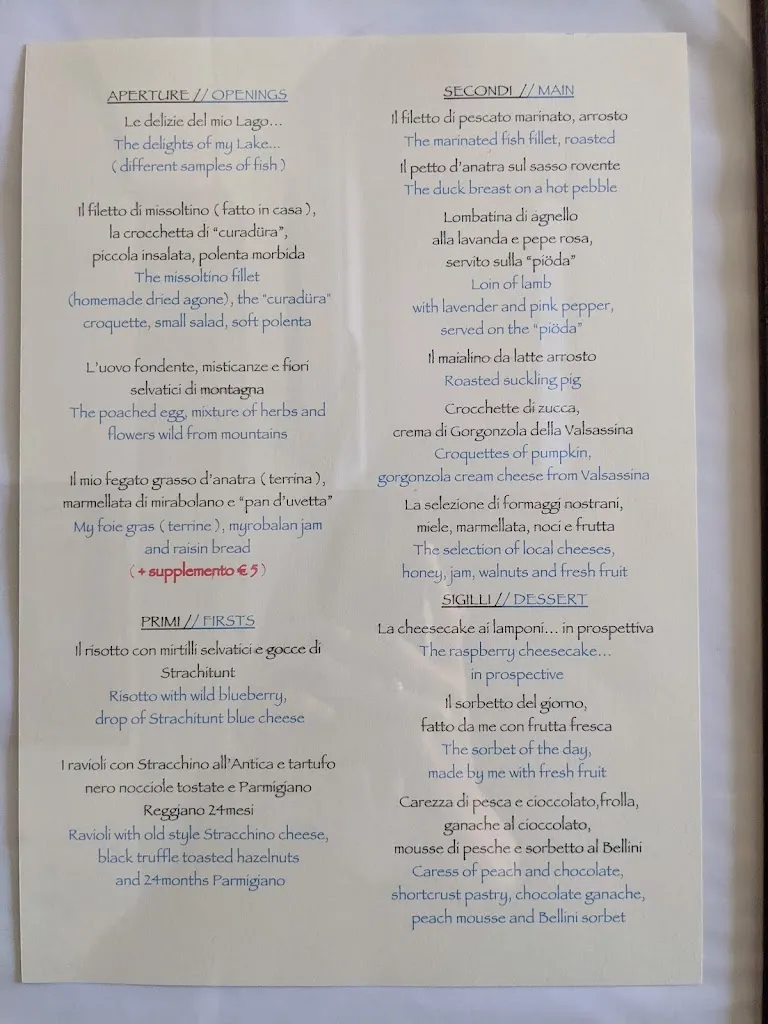 APERTURE // OPENINGS
Le delizie del mio Lago...
The delights of my Lake...
( different samples of fish )
Il filetto di missoltino ( fatto in casa ),
la crocchetta di "curadüra",
piccola insalata, polenta morbida
The missoltino fillet
(homemade dried agone), the "curadüra"
croquette, small salad, soft polenta
L'uovo fondente, misticanze e fiori
selvatici di montagna
The poached egg, mixture of herbs and
flowers wild from mountains
Il mio fegato grasso d'anatra ( terrina ),
marmellata di mirabolano e "pan d'uvetta"
My foie gras ( terrine ), myrobalan jam
and raisin bread
( + supplemento € 5 )
PRIMI // FIRSTS
Il risotto con mirtilli selvatici e gocce di
Strachitunt
Risotto with wild blueberry,
drop of Strachitunt blue cheese
I ravioli con Stracchino all'Antica e tartufo
nero nocciole tostate e Parmigiano
Reggiano 24mesi
Ravioli with old style Stracchino cheese,
black truffle toasted hazelnuts
and 24months Parmigiano
SECONDI // MAIN
Il filetto di pescato marinato, arrosto
The marinated fish fillet, roasted
Il petto d'anatra sul sasso rovente
The duck breast on a hot pebble
Lombatina di agnello
alla lavanda e pepe rosa,
servito sulla "piöda"
Loin of lamb
with lavender and pink pepper,
served on the "piöda"
Il maialino da latte arrosto
Roasted suckling pig
Crocchette di zucca,
crema di Gorgonzola della Valsassina
Croquettes of pumpkin,
gorgonzola cream cheese from Valsassina
La selezione di formaggi nostrani,
miele, marmellata, noci e frutta
The selection of local cheeses,
honey, jam, walnuts and fresh fruit
SIGILLI // DESSERT
La cheesecake ai lamponi... in prospettiva
The raspberry cheesecake...
in prospective
Il sorbetto del giorno,
fatto da me con frutta fresca
The sorbet of the day,
made by me with fresh fruit
Carezza di pesca e cioccolato,frolla,
ganache al cioccolato,
mousse di pesche e sorbetto al Bellini
Caress of peach and chocolate,
shortcrust pastry, chocolate ganache,
peach mousse and Bellini sorbet